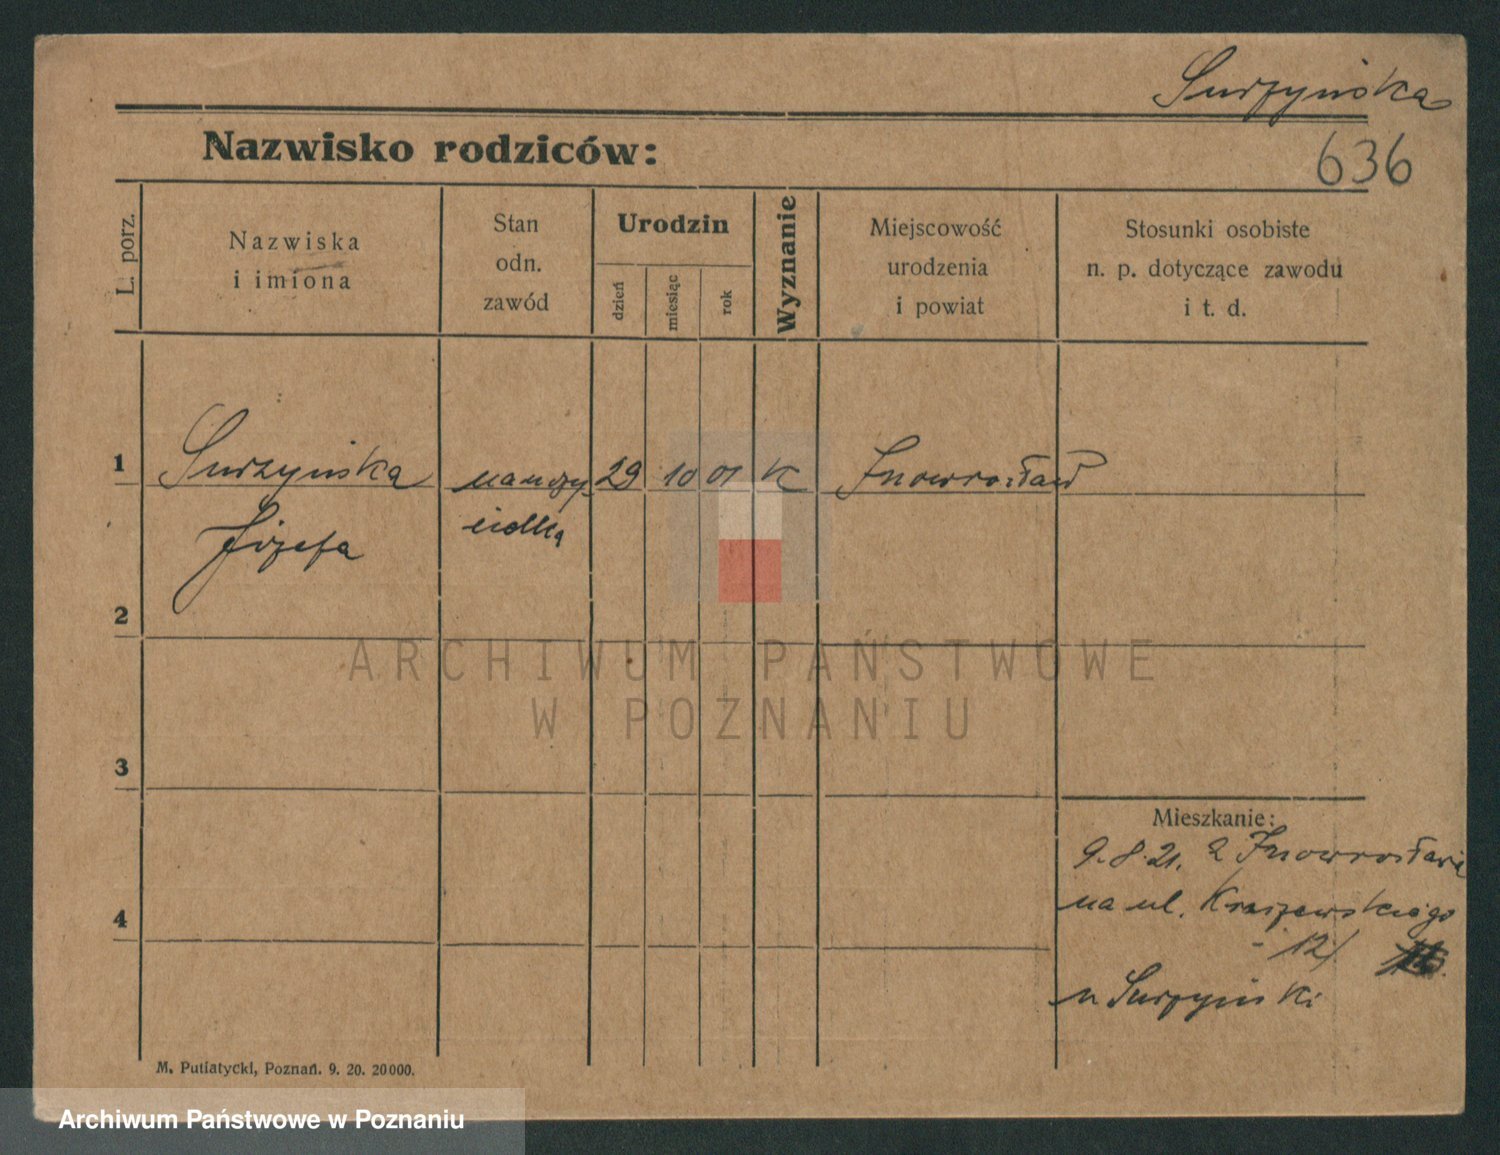 Surzyńska
636
Nazwisko rodziców:
L. porz.
Nazwiska
i imiona
Stan
odn.
zawód
Urodzin
dzień
miesiąc
rok
Wyznanie
Miejscowość
urodzenia
i powiat
Stosunki osobiste
n. p. dotyczące zawodu
i t. d.
1
Surzyńska
nauczy
29
10
01
K
Inowrocław
Józefa
cielka
2
ARCHIWUM PAŃSTWOWE
W POZNANIU
3
Mieszkanie:
9.8.21. z Inowrocławia
na ul. Kraszewskiego
12/
u Surzyński
4
M. Putiatycki, Poznań. 9. 20. 20000.
Archiwum Państwowe w Poznaniu